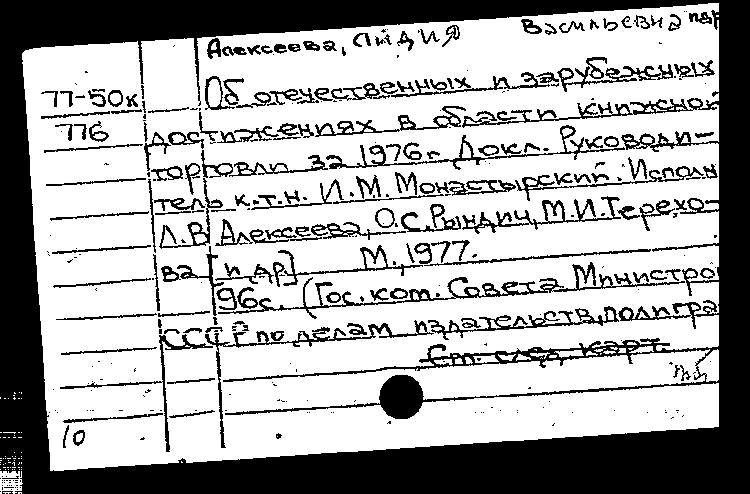 Алексеева, Лидия Васильевна
77-50к Об отечественных и зарубежных
776 достижениях в области книжной
торговли за 1976г. Докл. Руководи-
тель к.т.н. И.М. Монастырский. Исполн
Л.В Алексеева, О.С. Рындич, М.И. Терехо-
ва [и др] М., 1977.
96с. (Гос. ком. Совета Министро
СССР по делам издательств, полигра
См. след. карт.
10